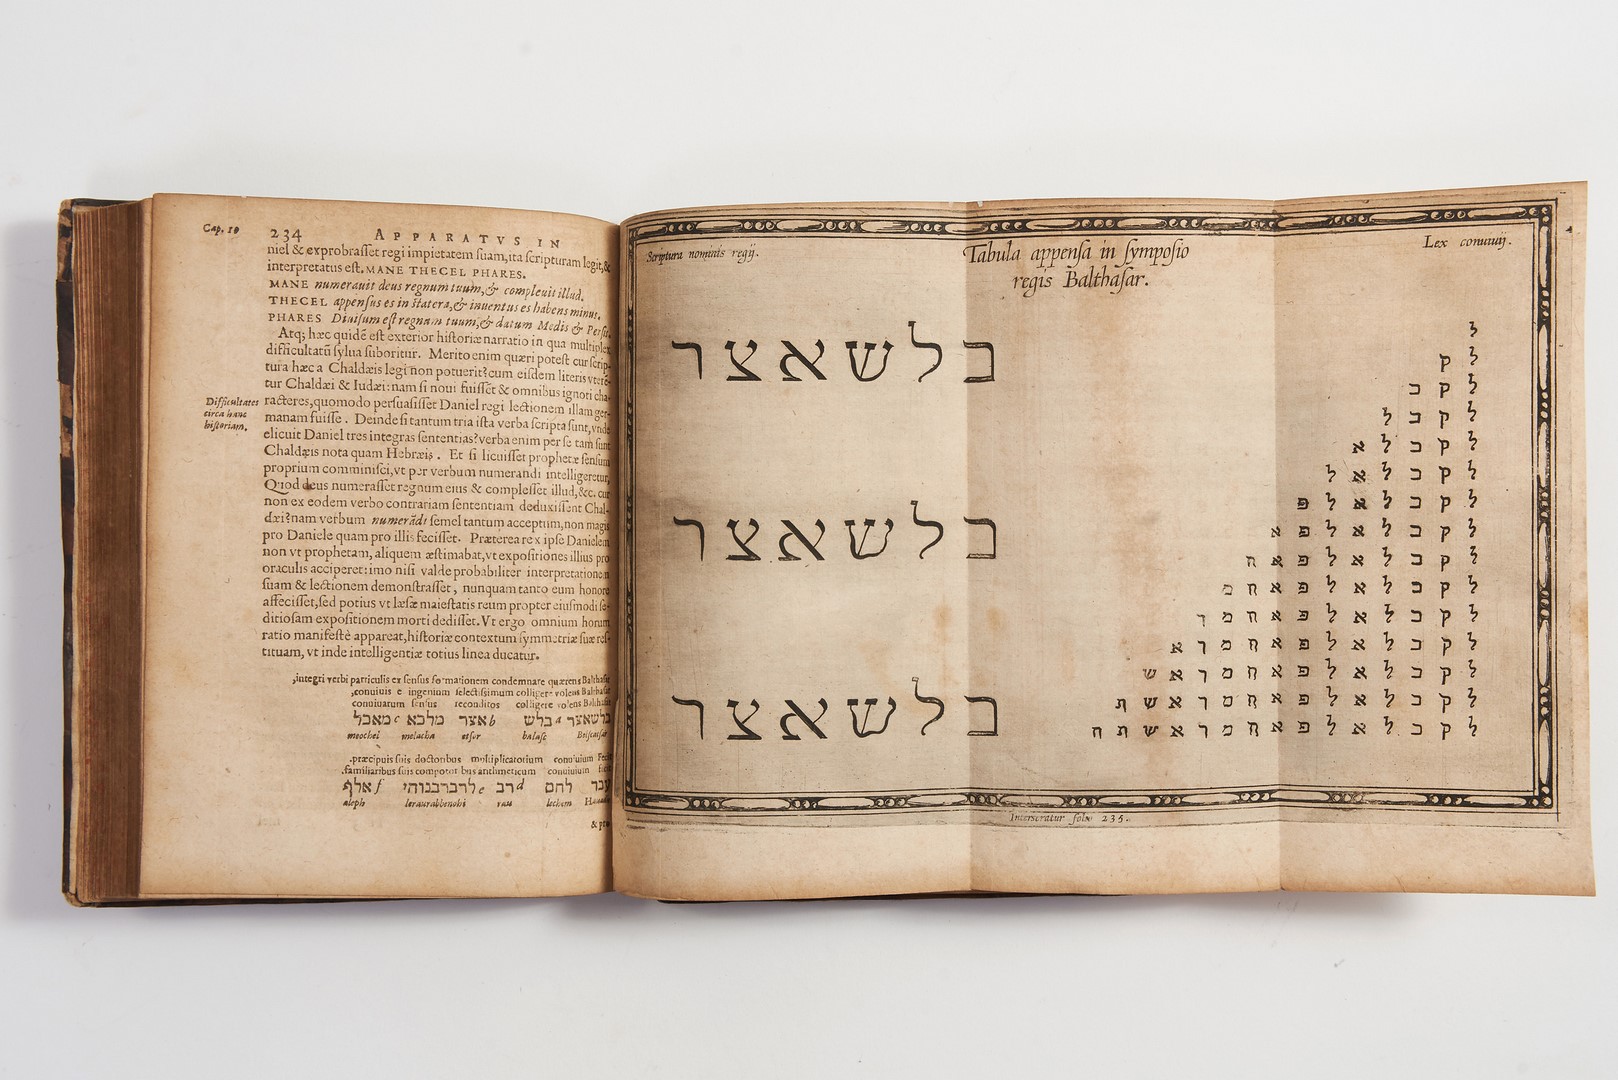 Cap. 10
234 APPARATVS IN
niel & exprobrasset regi impietatem suam, ita scripturam legit, &
interpretatus est. MANE THECEL PHARES.
MANE numerauit deus regnum tuum, & compleuit illud.
THECEL appensus es in statera, & inuentus es habens minus.
PHARES Diuisum est regnum tuum, & datum Medis & Persis.
Atq; hæc quidẽ est exterior historiæ narratio in qua multiplex
difficultatũ sylua suboritur. Merito enim quæri potest cur scrip-
tura hæc a Chaldæis legi non potuerit? cum eisdem literis vterẽ-
tur Chaldæi & Iudæi: nam si noui fuissẽt & omnibus ignoti cha-
Difficultates
circa hanc
historiam.
racteres, quomodo persuasisset Daniel regi lectionem illam ger-
manam fuisse. Deinde si tantum tria ista verba scripta sunt, vnde
elicuit Daniel tres integras sententias? verba enim per se tam sunt
Chaldæis nota quam Hebræis. Et si licuisset prophetæ sensum
proprium comminisci, vt per verbum numerandi intelligeretur,
Quod deus numerasset regnum eius & complesset illud, &c. cur
non ex eodem verbo contrariam sententiam deduxissent Chal-
dæi? nam verbum numerãdi semel tantum acceptum, non magis
pro Daniele quam pro illis fecisset. Præterea rex ipse Danielem
non vt prophetam, aliquem æstimabat, vt expositiones illius pro
oraculis acciperet: imo nisi valde probabiliter interpretationem
suam & lectionem demonstrasset, nunquam tanto eum honore
affecisset, sed potius vt læsæ maiestatis reum propter eiusmodi se-
ditiosam expositionem morti dedisset. Vt ergo omnium horum
ratio manifestè appareat, historiæ contextum symmetriæ suæ res-
tituam, vt inde intelligentiæ totius linea ducatur.
,integri verbi particulis ex sensus formationem condemnare quærens
,conuiuis e ingenium selectissimum colligere volens
conuiuarum sensus reconditos colligere volens
בלשאצר a בלש b אצר מלכא c מאכל
meochel melacha etsor balasc
.præcipuis suis doctoribus multiplicatorium conuiuium
.familiaribus suis compotoribus arithmeticum conuiuium
עבד לחם d רב e לרברבנוהי f אלף
aleph leraurabbenohi rau lechem
Scriptura nominis regij.
Tabula appensa in symposio
regis Balthasar.
Lex conuuij.
בלשאצר
בלשאצר
בלשאצר
ל
ל ק
ל ק כ
ל ק כ ל
ל ק כ ל א
ל ק כ ל א ל
ל ק כ ל א ל פ
ל ק כ ל א ל פ א
ל ק כ ל א ל פ א ח
ל ק כ ל א ל פ א ח מ
ל ק כ ל א ל פ א ח מ ר
ל ק כ ל א ל פ א ח מ ר א
ל ק כ ל א ל פ א ח מ ר א ש
ל ק כ ל א ל פ א ח מ ר א ש ת
ל ק כ ל א ל פ א ח מ ר א ש ת ח
Interseratur folio 235.